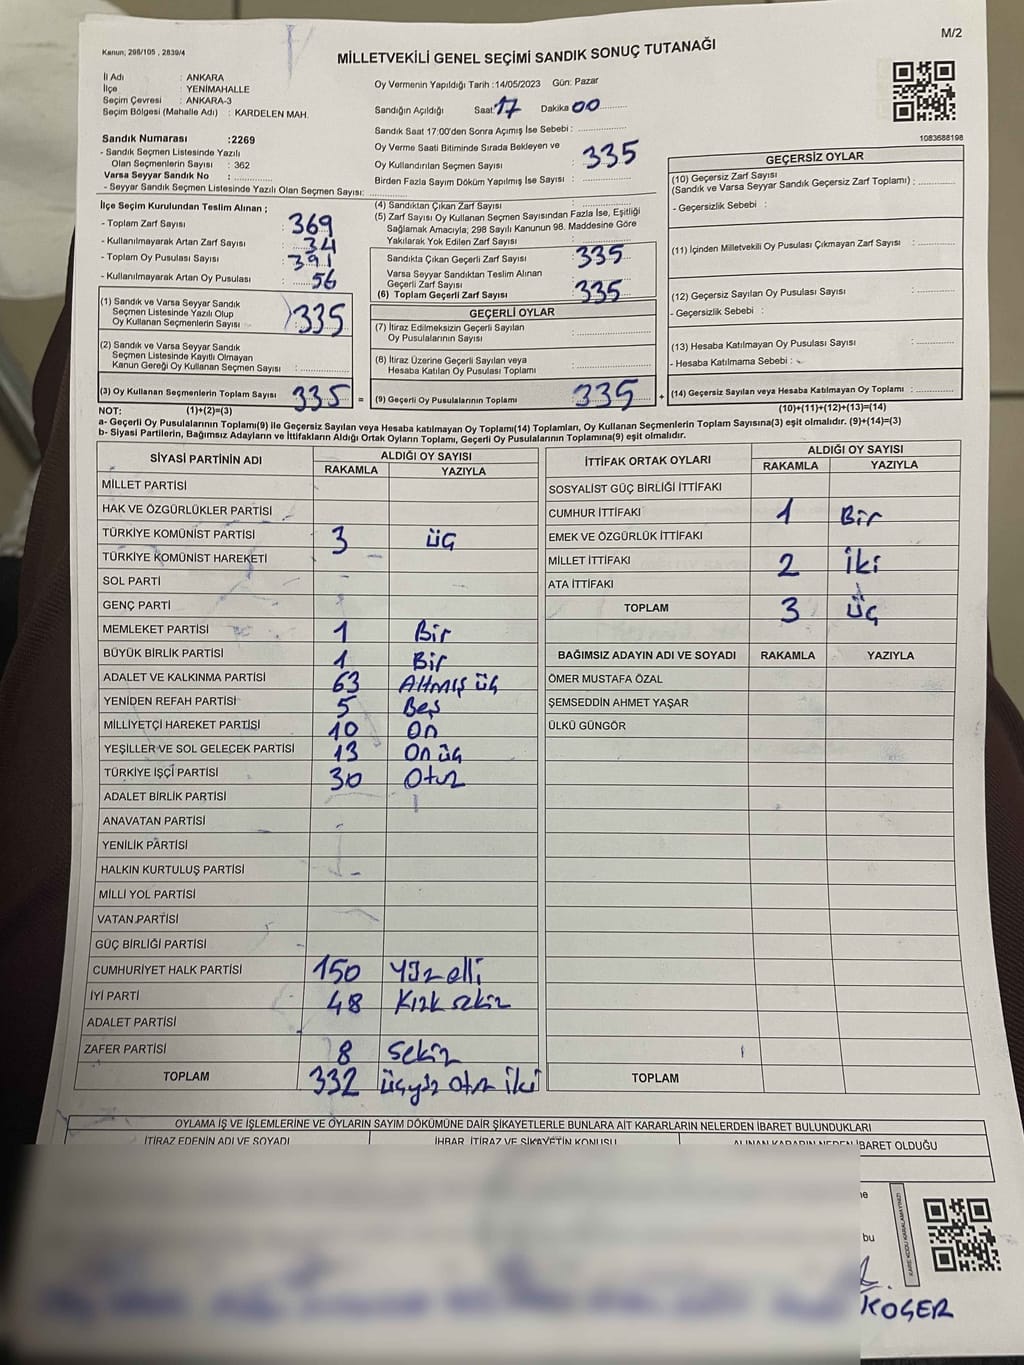 M/2
Kanun; 298/105 , 2839/4
MİLLETVEKİLİ GENEL SEÇİMİ SANDIK SONUÇ TUTANAĞI
İl Adı : ANKARA
İlçe : YENİMAHALLE
Seçim Çevresi : ANKARA-3
Seçim Bölgesi (Mahalle Adı) : KARDELEN MAH.
Oy Vermenin Yapıldığı Tarih :14/05/2023 Gün: Pazar
Sandığın Açıldığı Saat: 17 Dakika 00
Sandık Saat 17:00'den Sonra Açımış İse Sebebi :
1083688198
Sandık Numarası :2269
- Sandık Seçmen Listesinde Yazılı
Olan Seçmenlerin Sayısı : 362
Varsa Seyyar Sandık No :
- Seyyar Sandık Seçmen Listesinde Yazılı Olan Seçmen Sayısı:
Oy Verme Saati Bitiminde Sırada Bekleyen ve
Oy Kullandırılan Seçmen Sayısı : 335
Birden Fazla Sayım Döküm Yapılmış İse Sayısı :
İlçe Seçim Kurulundan Teslim Alınan ;
- Toplam Zarf Sayısı : 369
- Kullanılmayarak Artan Zarf Sayısı : 34
- Toplam Oy Pusulası Sayısı : 391
- Kullanılmayarak Artan Oy Pusulası : 56
(1) Sandık ve Varsa Seyyar Sandık
Seçmen Listesinde Yazılı Olup
Oy Kullanan Seçmenlerin Sayısı : 335
(2) Sandık ve Varsa Seyyar Sandık
Seçmen Listesinde Kayıtlı Olmayan
Kanun Gereği Oy Kullanan Seçmen Sayısı :
(3) Oy Kullanan Seçmenlerin Toplam Sayısı 335 =
(4) Sandıktan Çıkan Zarf Sayısı :
(5) Zarf Sayısı Oy Kullanan Seçmen Sayısından Fazla İse, Eşitliği
Sağlamak Amacıyla; 298 Sayılı Kanunun 98. Maddesine Göre
Yakılarak Yok Edilen Zarf Sayısı :
Sandıkta Çıkan Geçerli Zarf Sayısı : 335
Varsa Seyyar Sandıktan Teslim Alınan
Geçerli Zarf Sayısı :
(6) Toplam Geçerli Zarf Sayısı : 335
GEÇERLİ OYLAR
(7) İtiraz Edilmeksizin Geçerli Sayılan
Oy Pusulalarının Sayısı :
(8) İtiraz Üzerine Geçerli Sayılan veya
Hesaba Katılan Oy Pusulaları Toplamı :
(9) Geçerli Oy Pusulalarının Toplamı : 335 +
GEÇERSİZ OYLAR
(10) Geçersiz Zarf Sayısı
(Sandık ve Varsa Seyyar Sandık Geçersiz Zarf Toplamı) :
- Geçersizlik Sebebi :
(11) İçinden Milletvekili Oy Pusulası Çıkmayan Zarf Sayısı :
(12) Geçersiz Sayılan Oy Pusulası Sayısı :
- Geçersizlik Sebebi :
(13) Hesaba Katılmayan Oy Pusulası Sayısı :
- Hesaba Katılmama Sebebi :
(14) Geçersiz Sayılan veya Hesaba Katılmayan Oy Toplamı :
NOT: (1)+(2)=(3) (10)+(11)+(12)+(13)=(14)
a- Geçerli Oy Pusulalarının Toplamı(9) ile Geçersiz Sayılan veya Hesaba katılmayan Oy Toplamı(14) Toplamları, Oy Kullanan Seçmenlerin Toplam Sayısına(3) eşit olmalıdır. (9)+(14)=(3)
b- Siyasi Partilerin, Bağımsız Adayların ve İttifakların Aldığı Ortak Oyların Toplamı, Geçerli Oy Pusulalarının Toplamına(9) eşit olmalıdır.
SİYASİ PARTİNİN ADI ALDIĞI OY SAYISI
RAKAMLA YAZIYLA
MİLLET PARTİSİ
HAK VE ÖZGÜRLÜKLER PARTİSİ
TÜRKİYE KOMÜNİST PARTİSİ 3 üç
TÜRKİYE KOMÜNİST HAREKETİ
SOL PARTİ
GENÇ PARTİ
MEMLEKET PARTİSİ 1 Bir
BÜYÜK BİRLİK PARTİSİ 1 Bir
ADALET VE KALKINMA PARTİSİ 63 Altmış üç
YENİDEN REFAH PARTİSİ 5 Beş
MİLLİYETÇİ HAREKET PARTİSİ 10 On
YEŞİLLER VE SOL GELECEK PARTİSİ 13 On üç
TÜRKİYE İŞÇİ PARTİSİ 30 Otuz
ADALET BİRLİK PARTİSİ
ANAVATAN PARTİSİ
YENİLİK PARTİSİ
HALKIN KURTULUŞ PARTİSİ
MİLLİ YOL PARTİSİ
VATAN PARTİSİ
GÜÇ BİRLİĞİ PARTİSİ
CUMHURİYET HALK PARTİSİ 150 Yüz elli
İYİ PARTİ 48 Kırk sekiz
ADALET PARTİSİ
ZAFER PARTİSİ 8 Sekiz
TOPLAM 332 üçyüz otuz iki
İTTİFAK ORTAK OYLARI ALDIĞI OY SAYISI
RAKAMLA YAZIYLA
SOSYALİST GÜÇ BİRLİĞİ İTTİFAKI
CUMHUR İTTİFAKI 1 Bir
EMEK VE ÖZGÜRLÜK İTTİFAKI
MİLLET İTTİFAKI 2 iki
ATA İTTİFAKI
TOPLAM 3 üç
BAĞIMSIZ ADAYIN ADI VE SOYADI RAKAMLA YAZIYLA
ÖMER MUSTAFA ÖZAL
ŞEMSEDDİN AHMET YAŞAR
ÜLKÜ GÜNGÖR
TOPLAM
OYLAMA İŞ VE İŞLEMLERİNE VE OYLARIN SAYIM DÖKÜMÜNE DAİR ŞİKAYETLERLE BUNLARA AİT KARARLARIN NELERDEN İBARET BULUNDUKLARI
İTİRAZ EDENİN ADI VE SOYADI İHBAR, İTİRAZ VE ŞİKAYETİN KONUSU ALINAN KARARIN NEDEN İBARET OLDUĞU
bu
KARE KODU KARALAMAYINIZ!
KOÇER